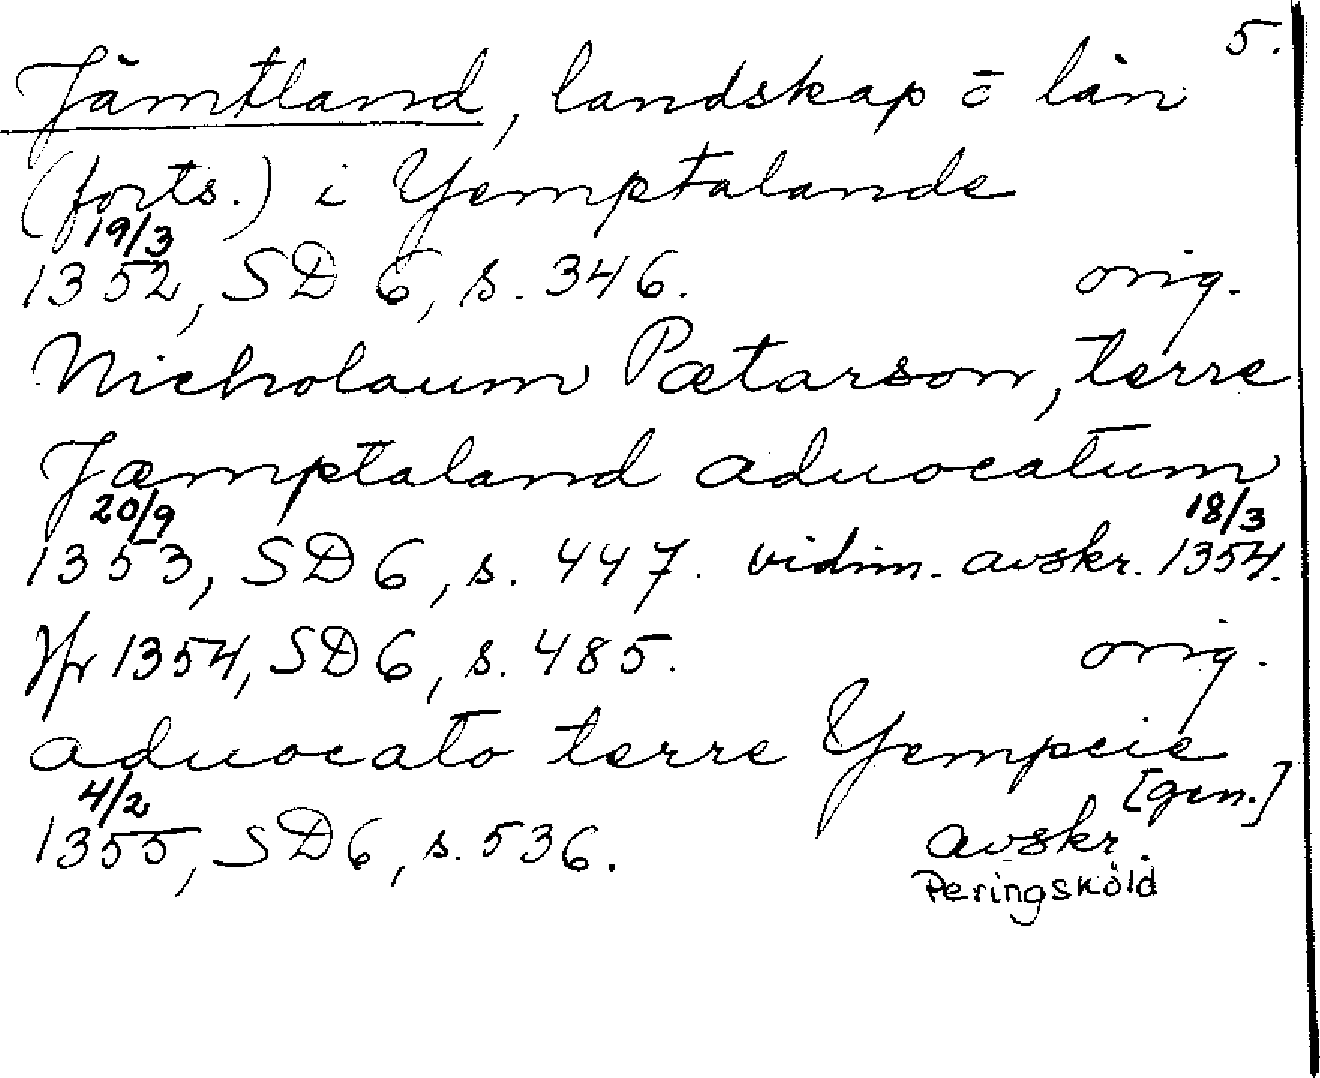 5.
Jämtland, landskap o län
(forts.) i Yemptalande
19/3
1352, SD 6, s. 346. orig.
Nicholaum Pætarson, terre
Jæmptaland aduocatum
20/9 18/3
1353, SD 6, s. 447. vidim. avskr. 1354.
Jfr 1354, SD 6, s. 485. orig.
aduocato terre Yempcie
[gen.]
4/2
1355, SD 6, s. 536. avskr.
Peringsköld